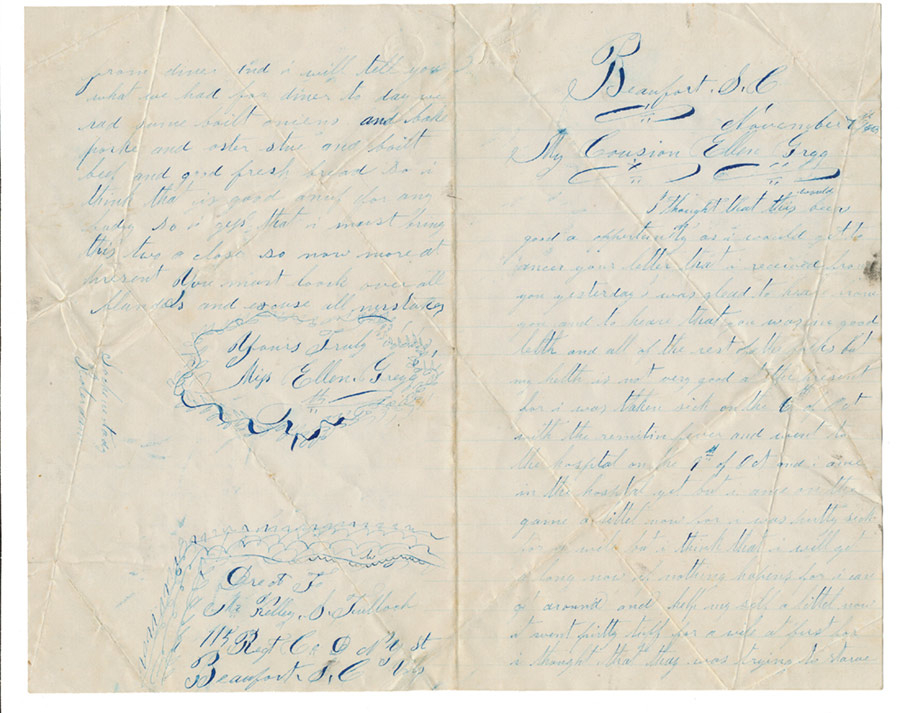 Beaufort. S. C
November 1st
My Cousion Ellen Gregg
I thought that this would been
good a opportunity as i would get to
ancer your letter that i received from
you yesterday i was glead to heare from
you and to heare that you was in good
helth and all of the rest of the folks but
my helth is not very good at the present
for i was taken sick on the 6 of Oct
with the remitin fever and went to
the hospital on the 9th of Oct and i aime
in the hospital yet but i aime on the
gaine a littel now for i was pritty sick
for a well but i think that i will get
a long now if nothing hapens for i can
get around and help my self a littel now
it went pritty tuff for a well at first for
i thought that thay was trying to starve
diner and i will tell you
what we had for diner to day we
had some built oniens and bake
porke and oster stue and built
beef and good fresh bread so i
think that is good anuf for any
budy so i gess that i must bring
this two a close so now more at
present You must look over all
and excuse all mistakes
Yours Truly
Miss Ellen Gregg
Direct To
Mr Kelley. S. Tulloch
115 Regt Co D N. Y St
Vols
Beaufort. S. C